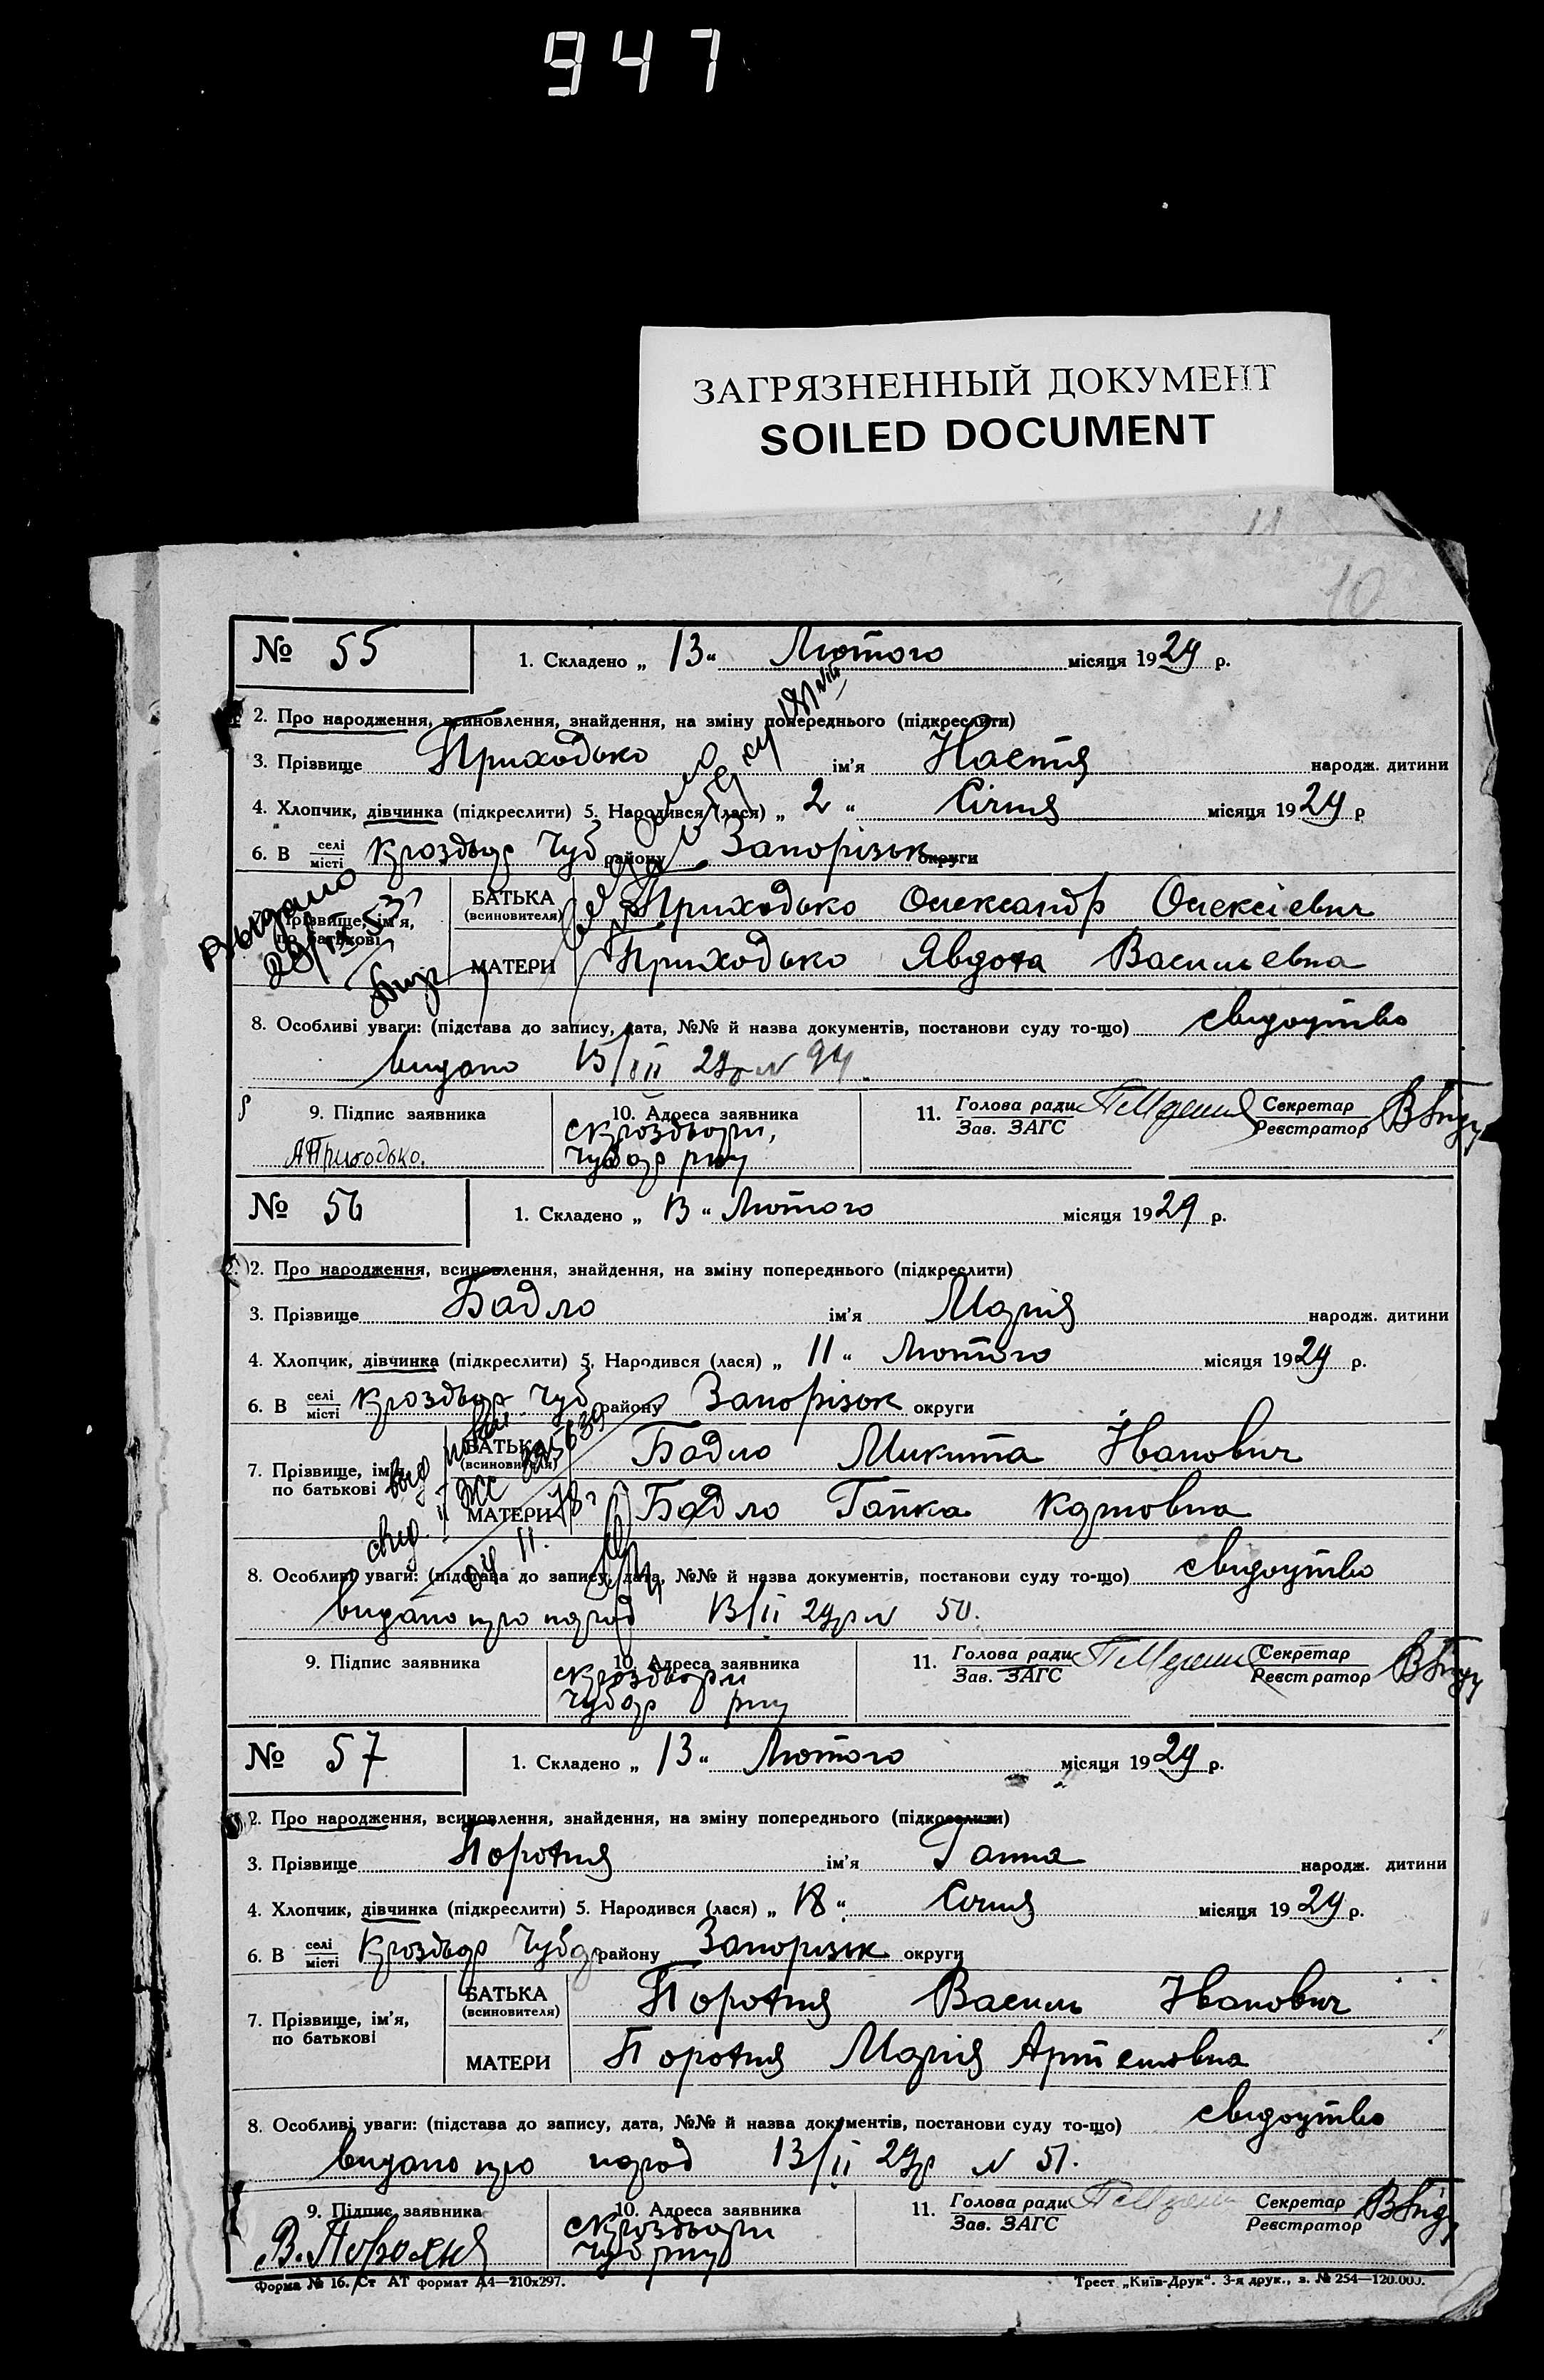 947
ЗАГРЯЗНЕННЫЙ ДОКУМЕНТ
SOILED DOCUMENT
11
10
№ 55 1. Складено „ 13 “ Лютого місяця 1929 р.
2. Про народження, всиновлення, знайдення, на зміну попереднього (підкреслити)
3. Прізвище Приходько ім’я Настя народж. дитини
4. Хлопчик, дівчинка (підкреслити) 5. Народився (лася) „ 2 “ Січня місяця 1929 р
6. В селі місті району Запорізьк округи
7. Прізвище, ім’я, по батькові
БАТЬКА (всиновителя) Приходько Олександр Олексієвич
МАТЕРИ Приходько Явдоха Васильевна
Выдано
8. Особливі уваги: (підстава до запису, дата, №№ й назва документів, постанови суду то-що) свидоцтво
видано 13/II 29р N
9. Підпис заявника 10. Адреса заявника 11. Голова ради Зав. ЗАГС Секретар Реєстратор
А Приходько.
№ 56 1. Складено „ 13 “ Лютого місяця 1929 р.
2. Про народження, всиновлення, знайдення, на зміну попереднього (підкреслити)
3. Прізвище Бадло ім’я Марія народж. дитини
4. Хлопчик, дівчинка (підкреслити) 5. Народився (лася) „ 11 “ Лютого місяця 1929 р.
6. В селі місті району Запорізьк округи
7. Прізвище, ім’я, по батькові
БАТЬКА (всиновителя) Бадло Микита Іванович
МАТЕРИ Бадло Гапка Карповна
8. Особливі уваги: (підстава до запису, дата, №№ й назва документів, постанови суду то-що) свидоцтво
видано про народ 13/II 29р N 50.
9. Підпис заявника 10. Адреса заявника 11. Голова ради Зав. ЗАГС Секретар Реєстратор
№ 57 1. Складено „ 13 “ Лютого місяця 1929 р.
2. Про народження, всиновлення, знайдення, на зміну попереднього (підкреслити)
3. Прізвище Порохня ім’я Ганна народж. дитини
4. Хлопчик, дівчинка (підкреслити) 5. Народився (лася) „ 18 “ Січня місяця 1929 р.
6. В селі місті району Запорізк округи
7. Прізвище, ім’я, по батькові
БАТЬКА (всиновителя) Порохня Василь Іванович
МАТЕРИ Порохня Марія Артемовна
8. Особливі уваги: (підстава до запису, дата, №№ й назва документів, постанови суду то-що) свидоцтво
видано про народ 13/II 29р N 51.
9. Підпис заявника 10. Адреса заявника 11. Голова ради Зав. ЗАГС Секретар Реєстратор
В. Порохня
Форма № 16. Ст АТ формат А4—210х297. Трест „Київ-Друк“. 3-я друк., з. № 254—120.000.